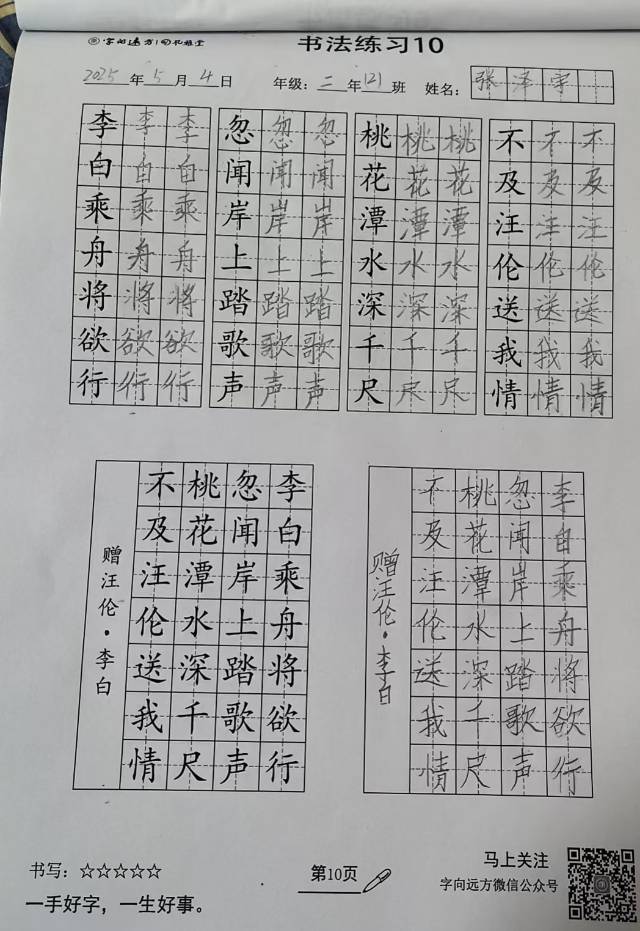 字向远方
书法练习10
2025年5月4日 年级：二年(2)班 姓名：张泽宇
李李李 忽忽忽 桃桃桃 不不不
白白白 闻闻闻 花花花 及及及
乘乘乘 岸岸岸 潭潭潭 汪汪汪
舟舟舟 上上上 水水水 伦伦伦
将将将 踏踏踏 深深深 送送送
欲欲欲 歌歌歌 千千千 我我我
行行行 声声声 尺尺尺 情情情
李白乘舟将欲行
忽闻岸上踏歌声
桃花潭水深千尺
不及汪伦送我情
赠汪伦·李白
李白乘舟将欲行
忽闻岸上踏歌声
桃花潭水深千尺
不及汪伦送我情
赠汪伦·李白
书写：☆☆☆☆☆
一手好字，一生好事。
第10页
马上关注
字向远方微信公众号